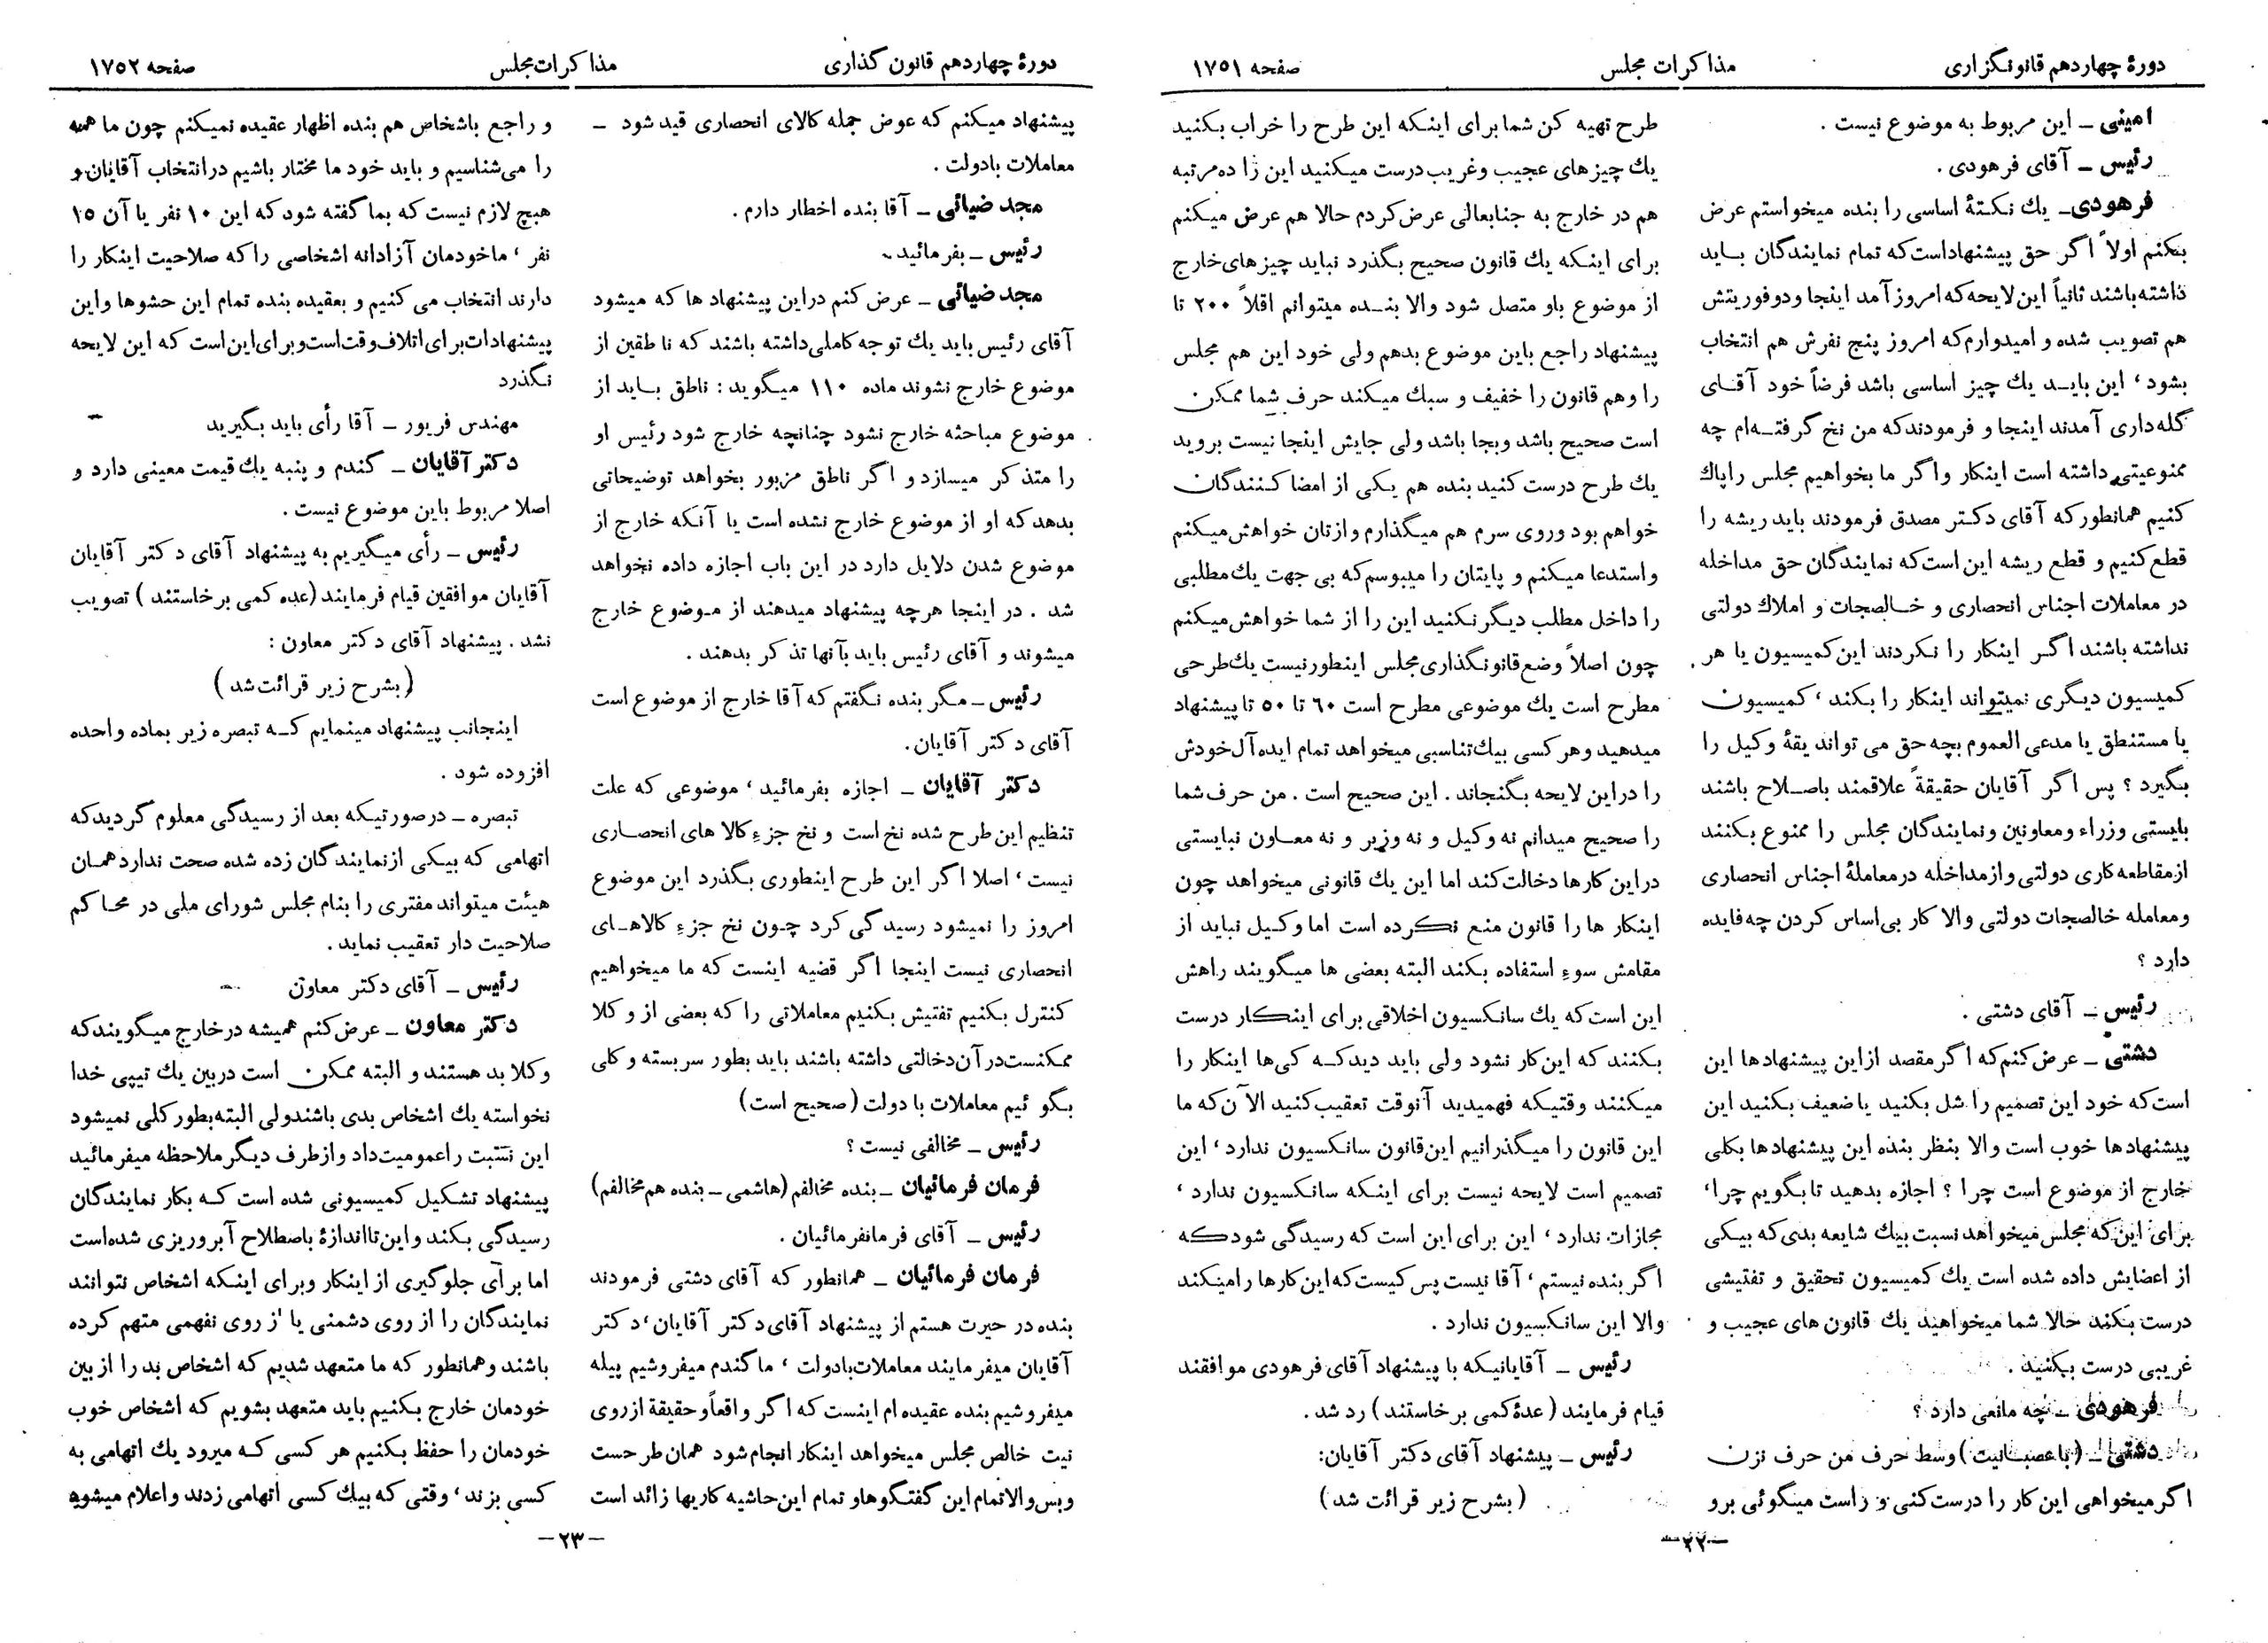 دورهٔ چهاردهم قانونگزاری
مذاکرات مجلس
صفحه ۱۷۵۱
امینی ـ این مربوط به موضوع نیست .
رئیس ـ آقای فرهودی .
فرهودی ـ یك نکتهٔ اساسی را بنده میخواستم عرض
بکنم اولاً اگر حق پیشنهاد است که تمام نمایندگان بـاید
داشته باشند ثانیاً این لایحه که امروز آمد اینجا و دو فوریتش
هم تصویب شده و امیدوارم که امروز پنج نفرش هم انتخاب
بشود ، این بایــد یك چیز اساسی باشد فرضاً خود آقــای
گله‌داری آمدند اینجا و فرمودند که من نخ گرفتــه‌ام چه
ممنوعیتی داشته است اینکار واگر ما بخواهیم مجلس را پاك
کنیم همانطور که آقای دکتر مصدق فرمودند باید ریشه را
قطع کنیم و قطع ریشه این است که نمایندگان حق مداخله
در معاملات اجناس انحصاری و خــالصجات و املاك دولتی
نداشته باشند اگــر اینکار را نکردند این کمیسیون یا هر
کمیسیون دیگری نمیتواند اینکار را بکند ، کمیسیون
یا مستنطق یا مدعی العموم بچه حق می تواند یقهٔ وکیل را
بگیرد ؟ پس اگر آقایان حقیقةً علاقمند باصــلاح باشند
بایستی وزراء و معاونین و نمایندگان مجلس را ممنوع بکنند
از مقاطعه کاری دولتی و از مداخله در معاملهٔ اجناس انحصاری
ومعامله خالصجات دولتی والا کار بی‌اساس کردن چه فایده
دارد ؟
رئیس ـ آقای دشتی .
دشتی ـ عرض کنم که اگر مقصد از این پیشنهادها این
است که خود این تصمیم را شل بکنید یا ضعیف بکنید این
پیشنهادها خوب است والا بنظر بنده این پیشنهادها بکلی
خارج از موضوع است چرا ؟ اجازه بدهید تا بگویم چرا،
برای این که مجلس میخواهد نسبت بیك شایعه بدی که بیکی
از اعضایش داده شده است یك کمیسیون تحقیق و تفتیشی
درست بکند حالا شما میخواهید یك قانون های عجیب و
غریبی درست بکنید .
فرهودی ـ چه مانعی دارد ؟
دشتی ـ (با عصبــانیت) وسط حرف من حرف نزن
اگر میخواهی این کار را درست کنی و راست میگوئی برو
طرح تهیه کن شما برای اینکه این طرح را خراب بکنید
یك چیزهای عجیب وغریب درست میکنید این را ده مرتبه
هم در خارج به جنابعالی عرض کردم حالا هم عرض میکنم
برای اینکه یك قانون صحیح بگذرد نباید چیزهای خارج
از موضوع باو متصل شود والا بنــده میتوانم اقلاً ۲۰۰ تا
پیشنهاد راجع باین موضوع بدهم ولی خود این هم مجلس
را وهم قانون را خفیف و سبك میکند حرف شما ممکن
است صحیح باشد وبجا باشد ولی جایش اینجا نیست بروید
یك طرح درست کنید بنده هم یکی از امضا کنندگان
خواهم بود وروی سرم هم میگذارم وازتان خواهش میکنم
و استدعا میکنم و پایتان را میبوسم که بی جهت یك مطلبی
را داخل مطلب دیگر نکنید این را از شما خواهش میکنم
چون اصلاً وضع قانونگذاری مجلس اینطور نیست یك طرحی
مطرح است یك موضوعی مطرح است ۶۰ تا ۵۰ تا پیشنهاد
میدهید وهر کسی بیك تناسبی میخواهد تمام ایده‌آل خودش
را در این لایحه بگنجاند . این صحیح است . من حرف شما
را صحیح میدانم نه وکیل و نه وزیر و نه معــاون نبایستی
در این کارها دخالت کند اما این یك قانونی میخواهد چون
اینکار ها را قانون منع نکرده است اما وکــیل نباید از
مقامش سوء استفاده بکند البته بعضی ها میگویند راهش
این است که یك سانکسیون اخلاقی برای اینکار درست
بکنند که این کار نشود ولی باید دید کــه کی‌ها اینکار را
میکنند وقتیکه فهمیدید آنوقت تعقیب کنید الآن که ما
این قانون را میگذرانیم این قانون سانکسیون ندارد ، این
تصمیم است لایحه نیست برای اینکه سانکسیون ندارد ،
مجازات ندارد ، این برای این است که رسیدگی شود که
اگر بنده نیستم ، آقا نیست پس کیست که این کارها را میکند
والا این سانکسیون ندارد .
رئیس ـ آقایانیکه با پیشنهاد آقای فرهودی موافقند
قیام فرمایند (عدهٔ کمی برخاستند) رد شد .
رئیس ـ پیشنهاد آقای دکتر آقایان:
(بشرح زیر قرائت شد)
ـ۲۲ـ
دورهٔ چهاردهم قانون گذاری
مذاکرات مجلس
صفحه ۱۷۵۲
پیشنهاد میکنم که عوض جمله کالای انحصاری قید شود ـ
معاملات بادولت .
مجد ضیائی ـ آقا بنده اخطار دارم .
رئیس ـ بفرمائید.
مجد ضیائی ـ عرض کنم در این پیشنهاد ها که میشود
آقای رئیس باید یك توجه کاملی داشته باشند که ناطقین از
موضوع خارج نشوند ماده ۱۱۰ میگوید : ناطق بــاید از
موضوع مباحثه خارج نشود چنانچه خارج شود رئیس او
را متذکر میسازد و اگر ناطق مزبور بخواهد توضیحاتی
بدهد که او از موضوع خارج نشده است یا آنکه خارج از
موضوع شدن دلایل دارد در این باب اجازه داده نخواهد
شد . در اینجا هرچه پیشنهاد میدهند از مــوضوع خارج
میشوند و آقای رئیس باید بآنها تذکر بدهند .
رئیس ـ مگر بنده نگفتم که آقا خارج از موضوع است
آقای دکتر آقایان.
دکتر آقایان ـ اجازه بفرمائید ، موضوعی که علت
تنظیم این طرح شده نخ است و نخ جزء کالا های انحصــاری
نیست ، اصلا اگر این طرح اینطوری بگذرد این موضوع
امروز را نمیشود رسیدگی کرد چــون نخ جزء کالاهــای
انحصاری نیست اینجا اگر قضیه اینست که ما میخواهیم
کنترل بکنیم تفتیش بکنیم معاملاتی را که بعضی از وکلا
ممکنست در آن دخالتی داشته باشند باید بطور سربسته و کلی
بگوئیم معاملات با دولت (صحیح است)
رئیس ـ مخالفی نیست ؟
فرمان فرمائیان ـ بنده مخالفم (هاشمی ـ بنده هم مخالفم)
رئیس ـ آقای فرمانفرمائیان .
فرمان فرمائیان ـ همانطور که آقای دشتی فرمودند
بنده در حیرت هستم از پیشنهاد آقای دکتر آقایان، دکتر
آقایان میفرمایند معاملات بادولت ، ما گندم میفروشیم پیله
میفروشیم بنده عقیده ام اینست که اگر واقعاً و حقیقة از روی
نیت خالص مجلس میخواهد اینکار انجام شود همان طرحست
و بس والا تمام این گفتگوها و تمام این حاشیه کاریها زائد است
و راجع باشخاص هم بنده اظهار عقیده نمیکنم چون ما همه
را می‌شناسیم و باید خود ما مختار باشیم در انتخاب آقایان و
هیچ لازم نیست که بما گفته شود که این ۱۰ نفر یا آن ۱۵
نفر ، ما خودمان آزادانه اشخاصی را که صلاحیت اینکار را
دارند انتخاب می کنیم و بعقیده بنده تمام این حشوها و این
پیشنهادات برای اتلاف وقت است و برای این است که این لایحه
نگذرد
مهندس فریور ـ آقا رأی باید بگیرید
دکتر آقایان ـ گندم و پنبه یك قیمت معینی دارد و
اصلا مربوط باین موضوع نیست .
رئیس ـ رأی میگیریم به پیشنهاد آقای دکتر آقایان
آقایان موافقین قیام فرمایند (عده کمی برخاستند) تصویب
نشد . پیشنهاد آقای دکتر معاون :
(بشرح زیر قرائت شد)
اینجانب پیشنهاد مینمایم کــه تبصره زیر بماده واحده
افزوده شود .
تبصره ـ در صورتیکه بعد از رسیدگی معلوم گردید که
اتهامی که بیکی از نمایندگان زده شده صحت ندارد همــان
هیئت میتواند مفتری را بنام مجلس شورای ملی در محاکم
صلاحیت دار تعقیب نماید .
رئیس ـ آقای دکتر معاون
دکتر معاون ـ عرض کنم همیشه در خارج میگویند که
وکلا بد هستند و البته ممکن است در بین یك تیپی خدا
نخواسته یك اشخاص بدی باشند ولی البته بطور کلی نمیشود
این نسبت را عمومیت داد و از طرف دیگر ملاحظه میفرمائید
پیشنهاد تشکیل کمیسیونی شده است کــه بکار نمایندگان
رسیدگی بکند و این تا اندازهٔ باصطلاح آبروریزی شده است
اما برای جلوگیری از اینکار وبرای اینکه اشخاص نتوانند
نمایندگان را از روی دشمنی یا از روی نفهمی متهم کرده
باشند و همانطور که ما متعهد شدیم که اشخاص بد را از بین
خودمان خارج بکنیم باید متعهد بشویم که اشخاص خوب
خودمان را حفظ بکنیم هر کسی کــه میرود یك اتهامی به
کسی بزند ، وقتی که بیك کسی اتهامی زدند و اعلام میشود
ـ۲۳ـ